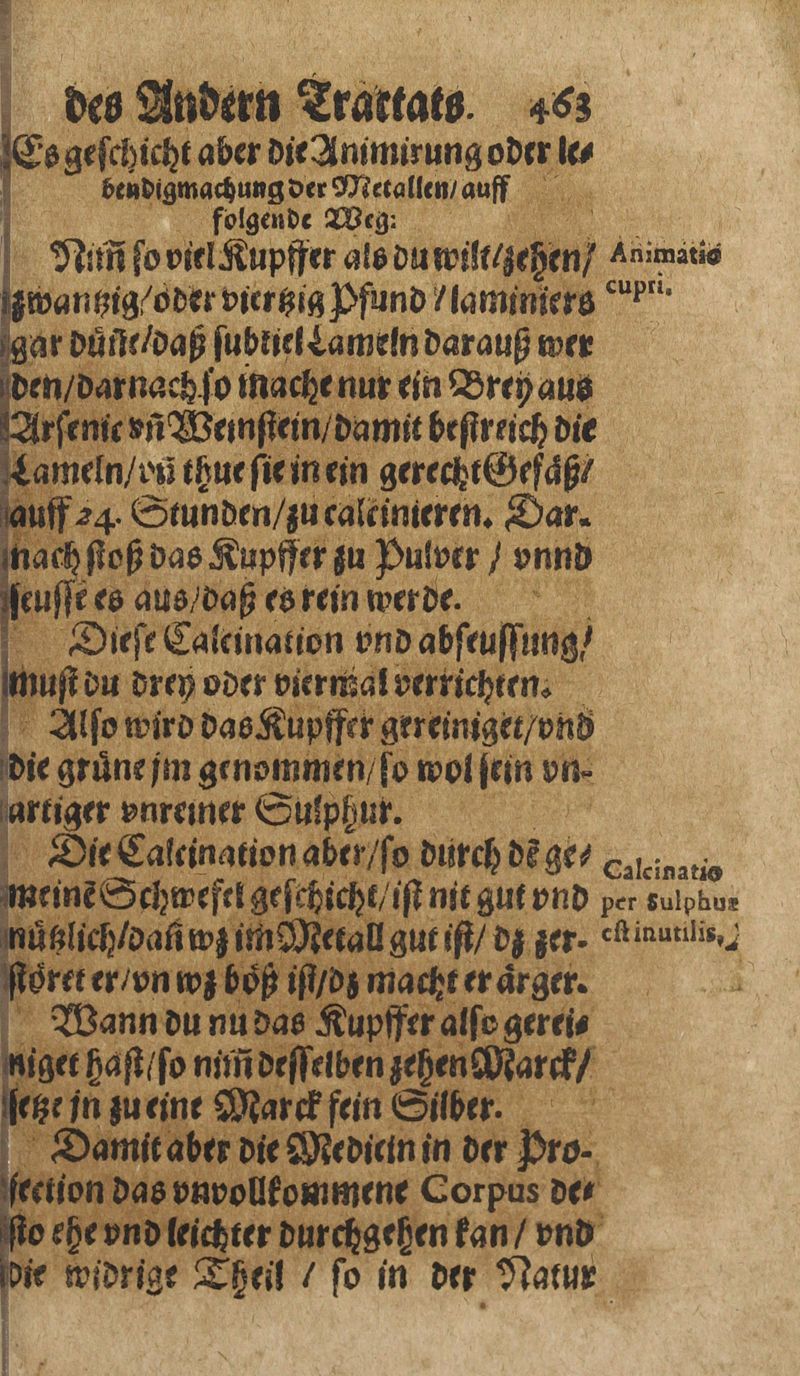 des Andern Tractats. 463
Es geschicht aber die Animirung oder le⸗
bendigmachung der Metallen/ auff
folgende Weg:
Nim̃ so viel Kupffer als du wilt/zehen/
Animatio
cupri.
zwantzig/oder viertzig Pfund / laminiers
gar důñe/daß subtiel Lameln darauß wer
den/darnach so mache nur ein Brey aus
Arsenic vñ Weinstein/damit bestreich die
Lameln/vñ thue sie in ein gerecht Gefäß/
auff 24. Stunden/zu calcinieren. Dar-
nach stoß das Kupffer zu Pulver / vnnd
seusse es aus/daß es rein werde.
Diese Calcination vnd abseussung/
must du drey oder viermal verrichten.
Also wird das Kupffer gereiniget/vnd
die grůne jm genommen/so wol sein vn-
artiger vnreiner Sulphur.
Die Calcination aber/so durch dẽ ge⸗
Calcinatio
per Sulphur
est inutilis.
meinẽ Schwefel geschicht/ist nit gut vnd
nůtzlich/dañ wz im Metall gut ist/ dz zer-
störet er/vn wz böß ist/dz macht er ärger.
Wann du nu das Kupffer also gerei⸗
niget hast/so nim̃ desselben zehen Marck/
setze jn zu eine Marck fein Silber.
Damit aber die Medicin in der Pro-
jection das vnvollkommene Corpus de⸗
sto ehe vnd leichter durchgehen kan / vnd
die widrige Theil / so in der Natur